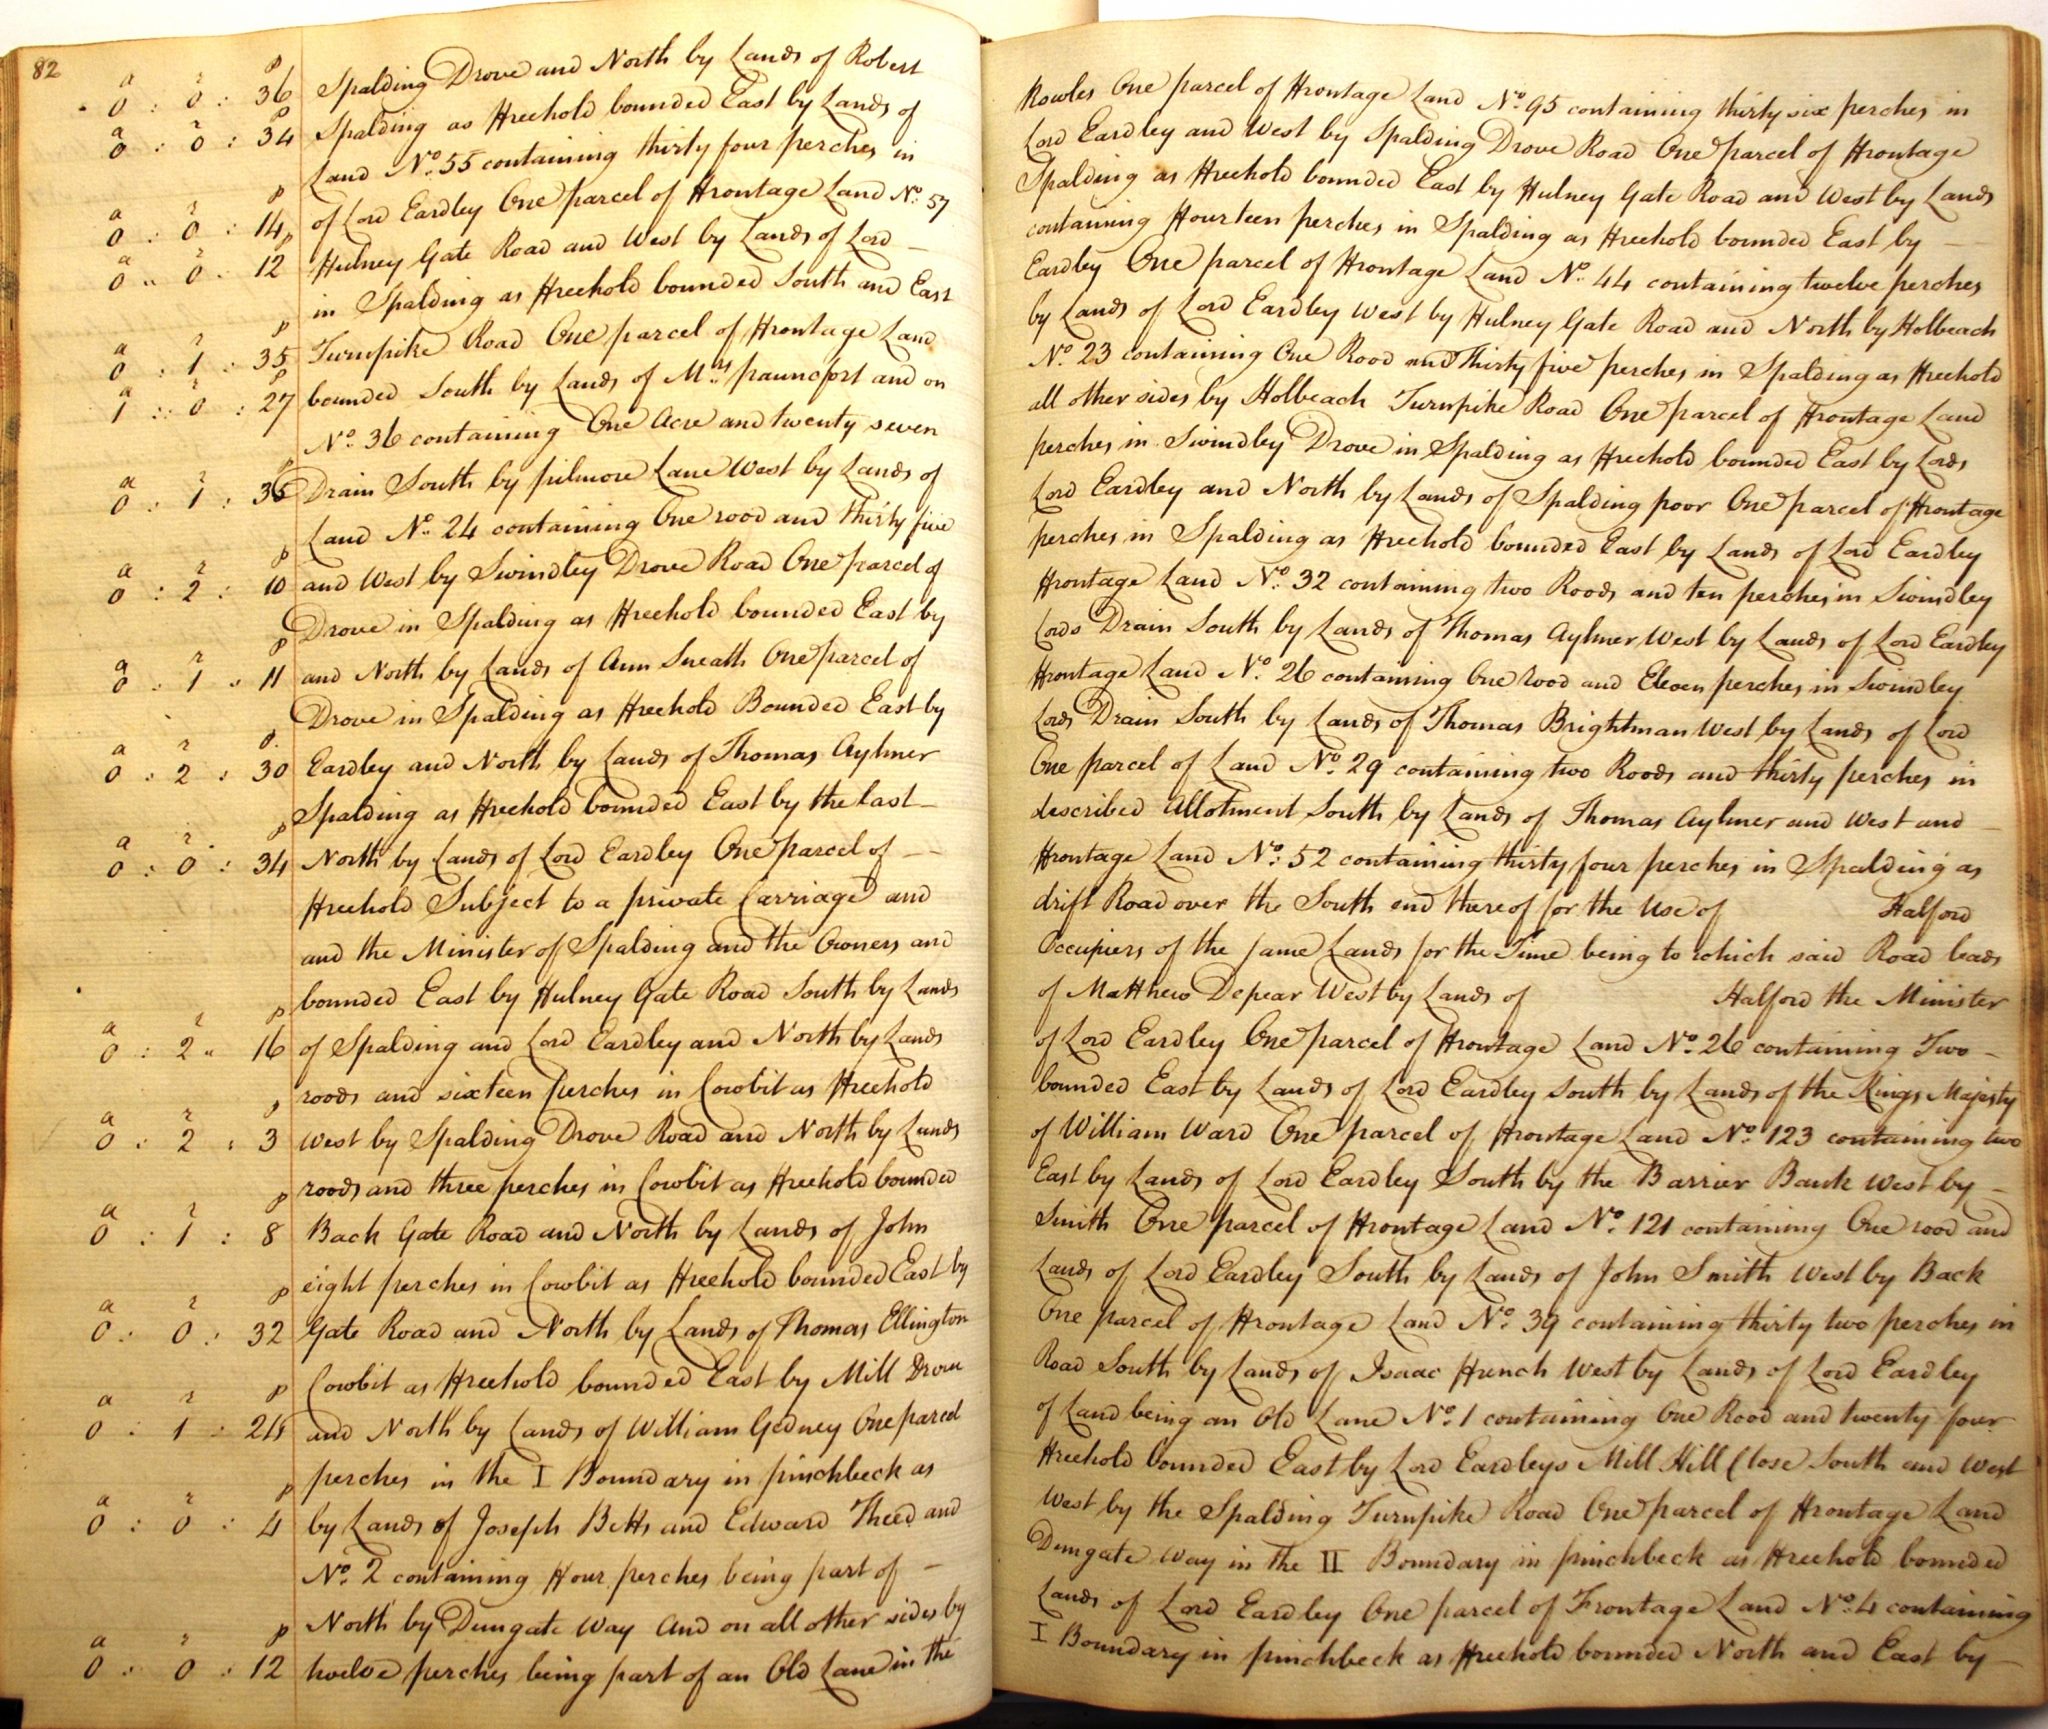 82
a r p
0 : 0 : 36 Spalding Drove and North by Lands of Robert Rowles One parcel of Frontage Land No. 95 containing thirty six perches in
a r p
0 : 0 : 34 Spalding as Freehold bounded East by Lands of Lord Eardley and West by Spalding Drove Road One parcel of Frontage
Land No. 55 containing thirty four perches in Spalding as Freehold bounded East by Hulney Gate Road and West by Lands
a r p
0 : 0 : 14 of Lord Eardley One parcel of Frontage Land No. 57 containing Fourteen perches in Spalding as Freehold bounded East by
a r p
0 : 0 : 12 Hulney Gate Road and West by Lands of Lord Eardley One parcel of Frontage Land No. 44 containing twelve perches
in Spalding as Freehold bounded South and East by Lands of Lord Eardley West by Hulney Gate Road and North by Holbeach
a r p
0 : 1 : 35 Turnpike Road One parcel of Frontage Land No. 23 containing One Rood and Thirty five perches in Spalding as Freehold
a r p
1 : 0 : 27 bounded South by Lands of Mrs. pauncfort and on all other sides by Holbeach Turnpike Road One parcel of Frontage Land
No. 36 containing One Acre and twenty seven perches in Swindley Drove in Spalding as Freehold bounded East by Lords
a r p
0 : 1 : 35 Drain South by pilmore Lane West by Lands of Lord Eardley and North by Lands of Spalding poor One parcel of Frontage
Land No. 24 containing One rood and thirty five perches in Spalding as Freehold bounded East by Lands of Lord Eardley
a r p
0 : 2 : 10 and West by Swindley Drove Road One parcel of Frontage Land No. 32 containing two Roods and ten perches in Swindley
Drove in Spalding as Freehold bounded East by Lords Drain South by Lands of Thomas Aylmer West by Lands of Lord Eardley
a r p
0 : 1 : 11 and North by Lands of Ann Sneath One parcel of Frontage Land No. 26 containing One rood and Eleven perches in Swindley
Drove in Spalding as Freehold Bounded East by Lords Drain South by Lands of Thomas Brightman West by Lands of Lord
a r p
0 : 2 : 30 Eardley and North by Lands of Thomas Aylmer One parcel of Land No. 29 containing two Roods and thirty perches in
Spalding as Freehold bounded East by the last described Allotment South by Lands of Thomas Aylmer and West and
a r p
0 : 0 : 34 North by Lands of Lord Eardley One parcel of Frontage Land No. 52 containing thirty four perches in Spalding as
Freehold Subject to a private Carriage and drift Road over the South end thereof for the Use of Halford
and the Minister of Spalding and the Owners and Occupiers of the same Lands for the Time being to which said Road leads
bounded East by Hulney Gate Road South by Lands of Matthew Depear West by Lands of Halford the Minister
a r p
0 : 2 : 16 of Spalding and Lord Eardley and North by Lands of Lord Eardley One parcel of Frontage Land No. 26 containing Two
roods and sixteen perches in Cowbit as Freehold bounded East by Lands of Lord Eardley South by Lands of the Kings Majesty
a r p
0 : 2 : 3 West by Spalding Drove Road and North by Lands of William Ward One parcel of Frontage Land No. 123 containing two
roods and three perches in Cowbit as Freehold bounded East by Lands of Lord Eardley South by the Barrier Bank West by
a r p
0 : 1 : 8 Back Gate Road and North by Lands of John Smith One parcel of Frontage Land No. 121 containing One rood and
eight perches in Cowbit as Freehold bounded East by Lands of Lord Eardley South by Lands of John Smith West by Back
a r p
0 : 0 : 32 Gate Road and North by Lands of Thomas Ellington One parcel of Frontage Land No. 39 containing thirty two perches in
Cowbit as Freehold bounded East by Mill Drove Road South by Lands of Isaac French West by Lands of Lord Eardley
a r p
0 : 1 : 24 and North by Lands of William Gedney One parcel of Land being an Old Lane No. 1 containing One Rood and twenty four
perches in the I Boundary in pinchbeck as Freehold bounded East by Lord Eardleys Mill Hill Close South and West
a r p
0 : 0 : 4 by Lands of Joseph Betts and Edward Theed and West by the Spalding Turnpike Road One parcel of Frontage Land
No. 2 containing Four perches being part of Dungate Way in the II Boundary in pinchbeck as Freehold bounded
North by Dungate Way And on all other sides by Lands of Lord Eardley One parcel of Frontage Land No. 4 containing
a r p
0 : 0 : 12 twelve perches being part of an Old Lane in the I Boundary in pinchbeck as Freehold bounded North and East by